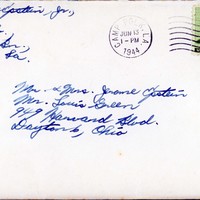 Epstein, Jr.,
La.
CAMP
LA.
JUN 13
1-PM
1944
Mr. & Mrs. Jerome Epstein
Mr. Louis Green
949 Harvard Blvd.
Dayton 6, Ohio